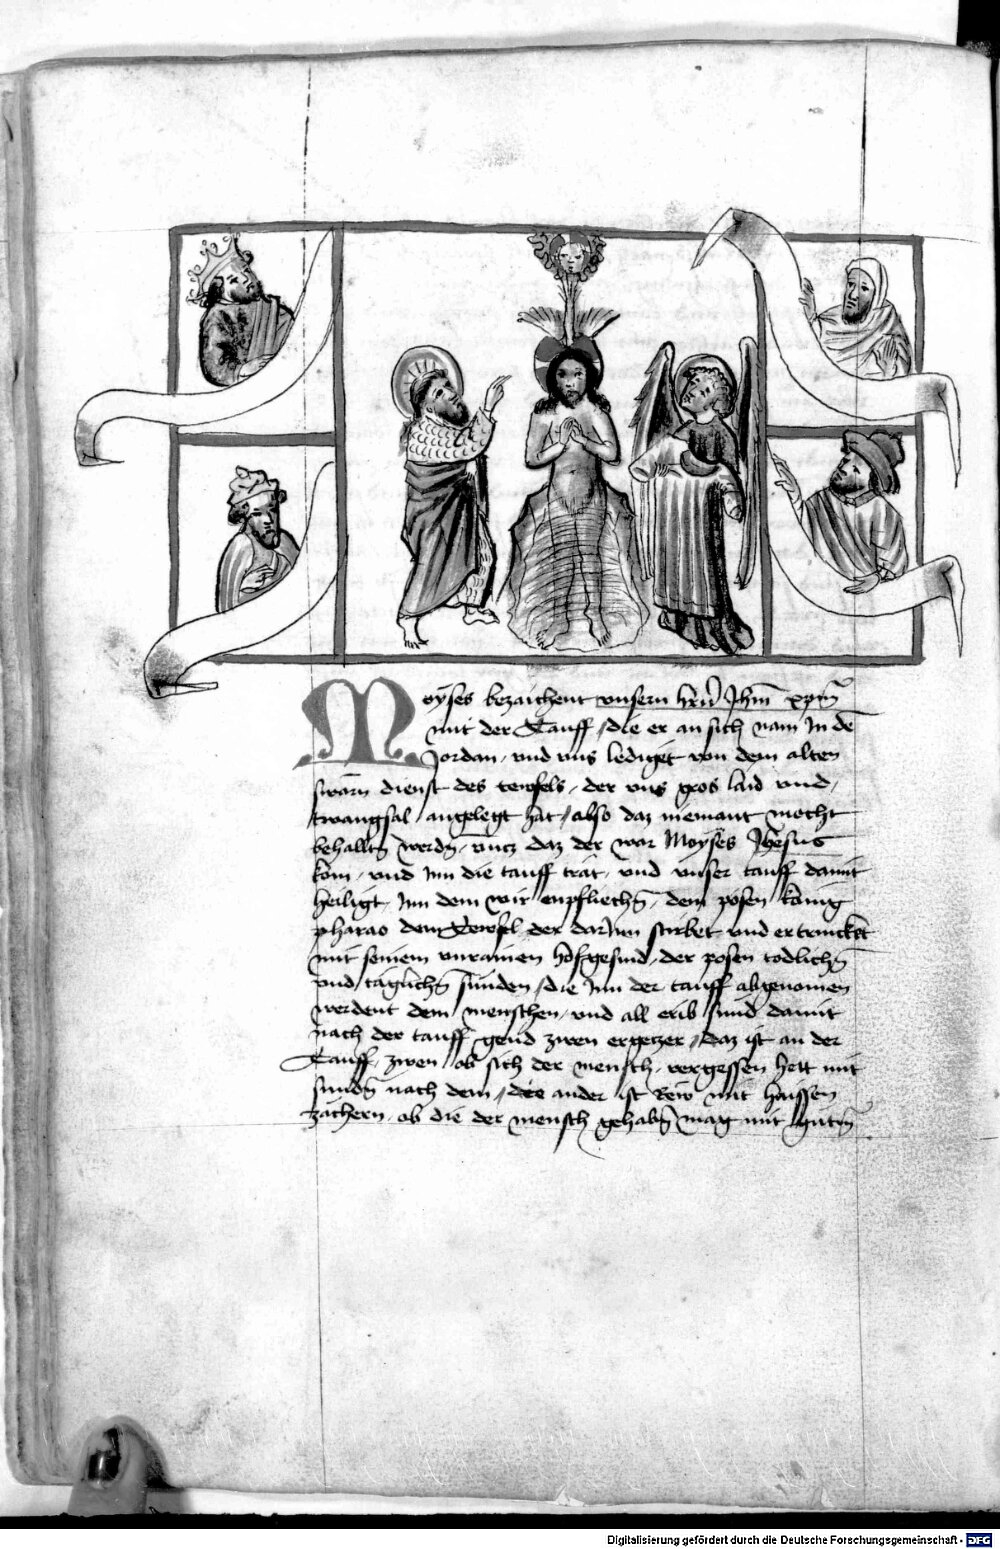 Moyses bezaichent vnsern hrn̄ Jhm̄ xpm̄
mit der Tauff / die er an sich nam In dē
Jordan / vnd vns lediget von dem alten
swarn dienst des tewfels / der vns gros laid vnd /
twangsal / angelegt hat / also daz niemant mocht
behalltn̄ werdn̄ / vncz daz der war Moyses Jhesus
kom / vnd Inn die tauff trat / vnd vnser tauff damit
heiligt / Inn dem wir enpfliechn̄ / dem pösen könig
pharao dem Tewfel der darInn stirbet vnd ertrincket
mit seinem vnrainen hofgesind / der posen todlichn̄
vnd täglichn̄ sünden / die Inn der tauff abgenomen
werdent dem menschen / vnd all erib sünd damit
nach der tauff gend zwen ergeczer / daz ist an der
Tauff / zwen ob sich der mensch / vergessen hett mit
sündn̄ nach dem / die ander ist Rew mit haissen
zächern / ob die der mensch gehabn̄ mag mit gutn̄
Digitalisierung gefördert durch die Deutsche Forschungsgemeinschaft - DFG